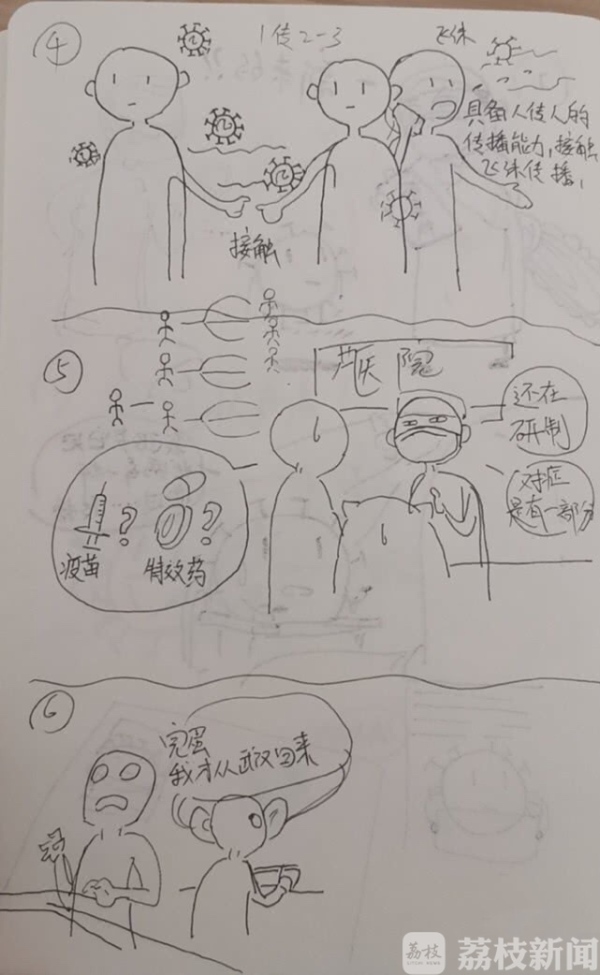 ④
1传2-3
飞沫
具备人传人的
传播能力,接触
飞沫传播,
接触
⑤
医院
还在
研制
对症
是有一部分
疫苗
?
特效药
?
⑥
完蛋
我才从武汉回来
荔枝
荔枝新闻